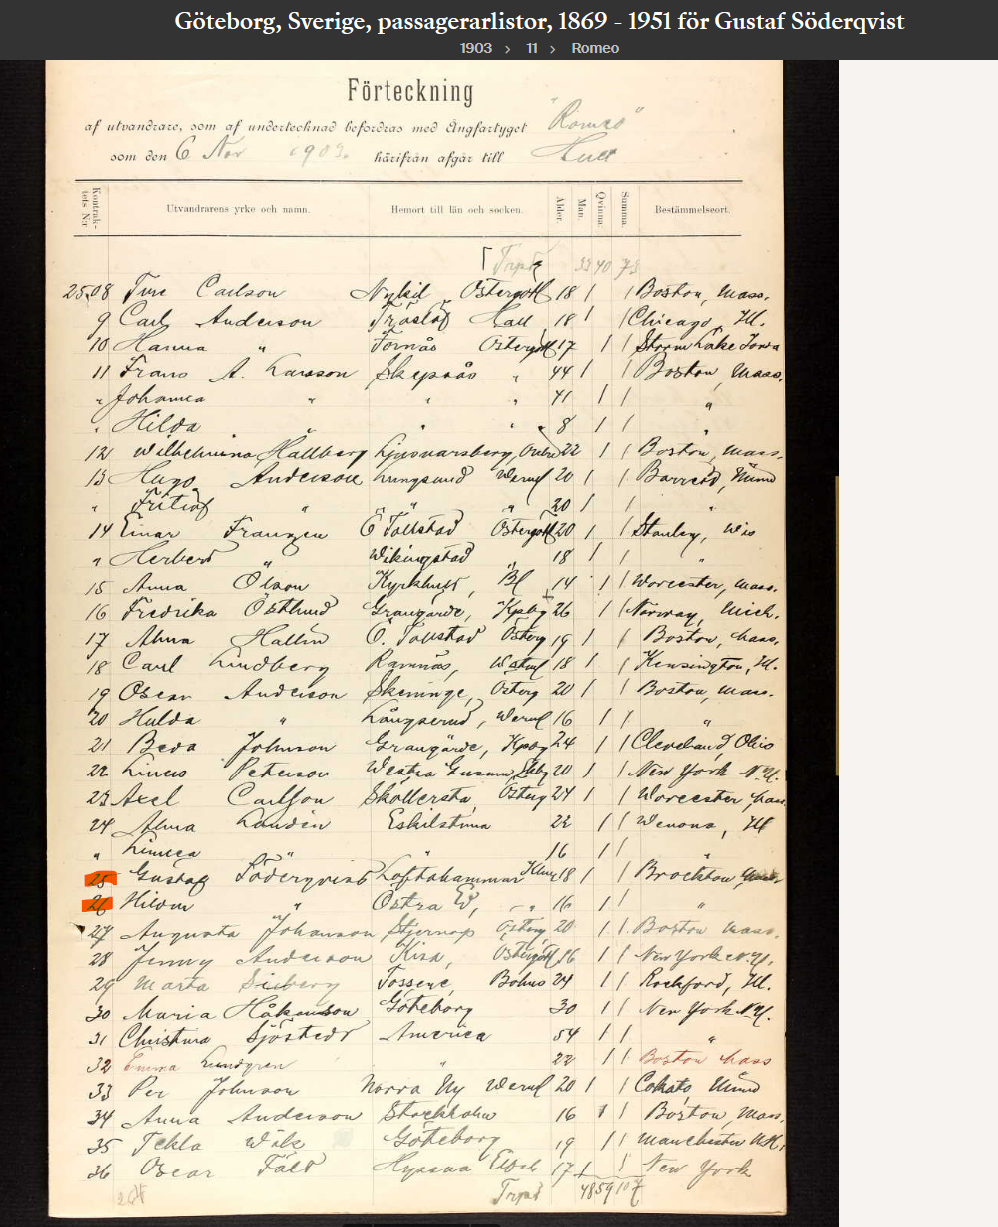 Göteborg, Sverige, passagerarlistor, 1869 - 1951 för Gustaf Söderqvist
1903 > 11 > Romeo
Förteckning
af utvandrare, som af undertecknad befordras med ångfartyget "Romeo"
som den 6 Nov 1903. härifrån afgår till Hull
Kontraktets N:r Utvandrarens yrke och namn. Hemort till län och socken. Ålder. Man. Qvinna. Summa. Bestämmelseort.
Trpt 33 40 73
2508 Ture Carlson Nykil Östergötl 18 1 1 Boston, Mass.
9 Carl Anderson Tröslöf Hall 18 1 1 Chicago, Ill.
10 Hanna " Fornås Östergötl 17 1 1 Storm Lake Iowa
11 Frans A. Larsson Skepsås " 44 1 Boston, Mass.
" Johanna " " " 41 1 1 "
" Hilda " " " 8 1 1 "
12 Wilhelmina Hallberg Ljusnarsberg, Örebro 22 1 1 Boston, Mass.
13 Hugo Anderson Lungsund Werml 20 1 1 Minn
" Fritiof " " " 20 1 1 "
14 Einar Franzen Ö Tollstad Östergötl 20 1 1 Stanley, Wis
" Herbert " Wikingstad " 18 1 1 "
15 Anna Olson Kyrkhult, Bl 14 1 1 Worcester, Mass.
16 Fredrika Östlund Grangärde, Kpbg 26 1 1 Norway, Mich.
17 Alma Hallin Ö. Tollstad Österg 19 1 1 Boston, Mass.
18 Carl Lindberg Ramnäs, Wstml 18 1 1 Kensington, Ill.
19 Oscar Anderson Skeninge, Österg 20 1 1 Boston, Mass.
20 Hulda " Långserud, Werml 16 1 1 "
21 Beda Johnson Grangärde, Kpbg 24 1 1 Cleveland, Ohio
22 Linus Peterson Westra 20 1 1 New York N.Y.
23 Axel Carlson Skällersta, Österg 24 1 1 Worcester Mass
24 Alma Landin Eskilstuna 22 1 1 Wenona, Ill
" Linnea " " 16 1 1 "
25 Gustaf Söderqvist Loftahammar Klmr 18 1 1 Brockton, Mass.
26 Hildur " Östra Ed, " 16 1 1 "
27 Augusta Johanson Stjernop Österg 20 1 1 Boston Mass.
28 Jenny Anderson Kisa, Östergötl 16 1 1 New York N.Y.
29 Marta Siberg Tossene, Bohus 24 1 1 Rockford, Ill.
30 Maria Håkanson Göteborg 30 1 1 New York N.Y.
31 Christina Sjöstedt America 54 1 1 "
32 Emma Lundgren " 22 1 1 Boston Mass
33 Per Johnson Norra Ny Werml 20 1 1 Cokato Minn
34 Anna Anderson Stockholm 16 1 1 Boston, Mass.
35 Tekla Wik Göteborg 19 1 1 Manchester N.H.
36 Oscar Fält Hyssna Elfsb 17 1 1 New York
264 Trpt 48 59 107